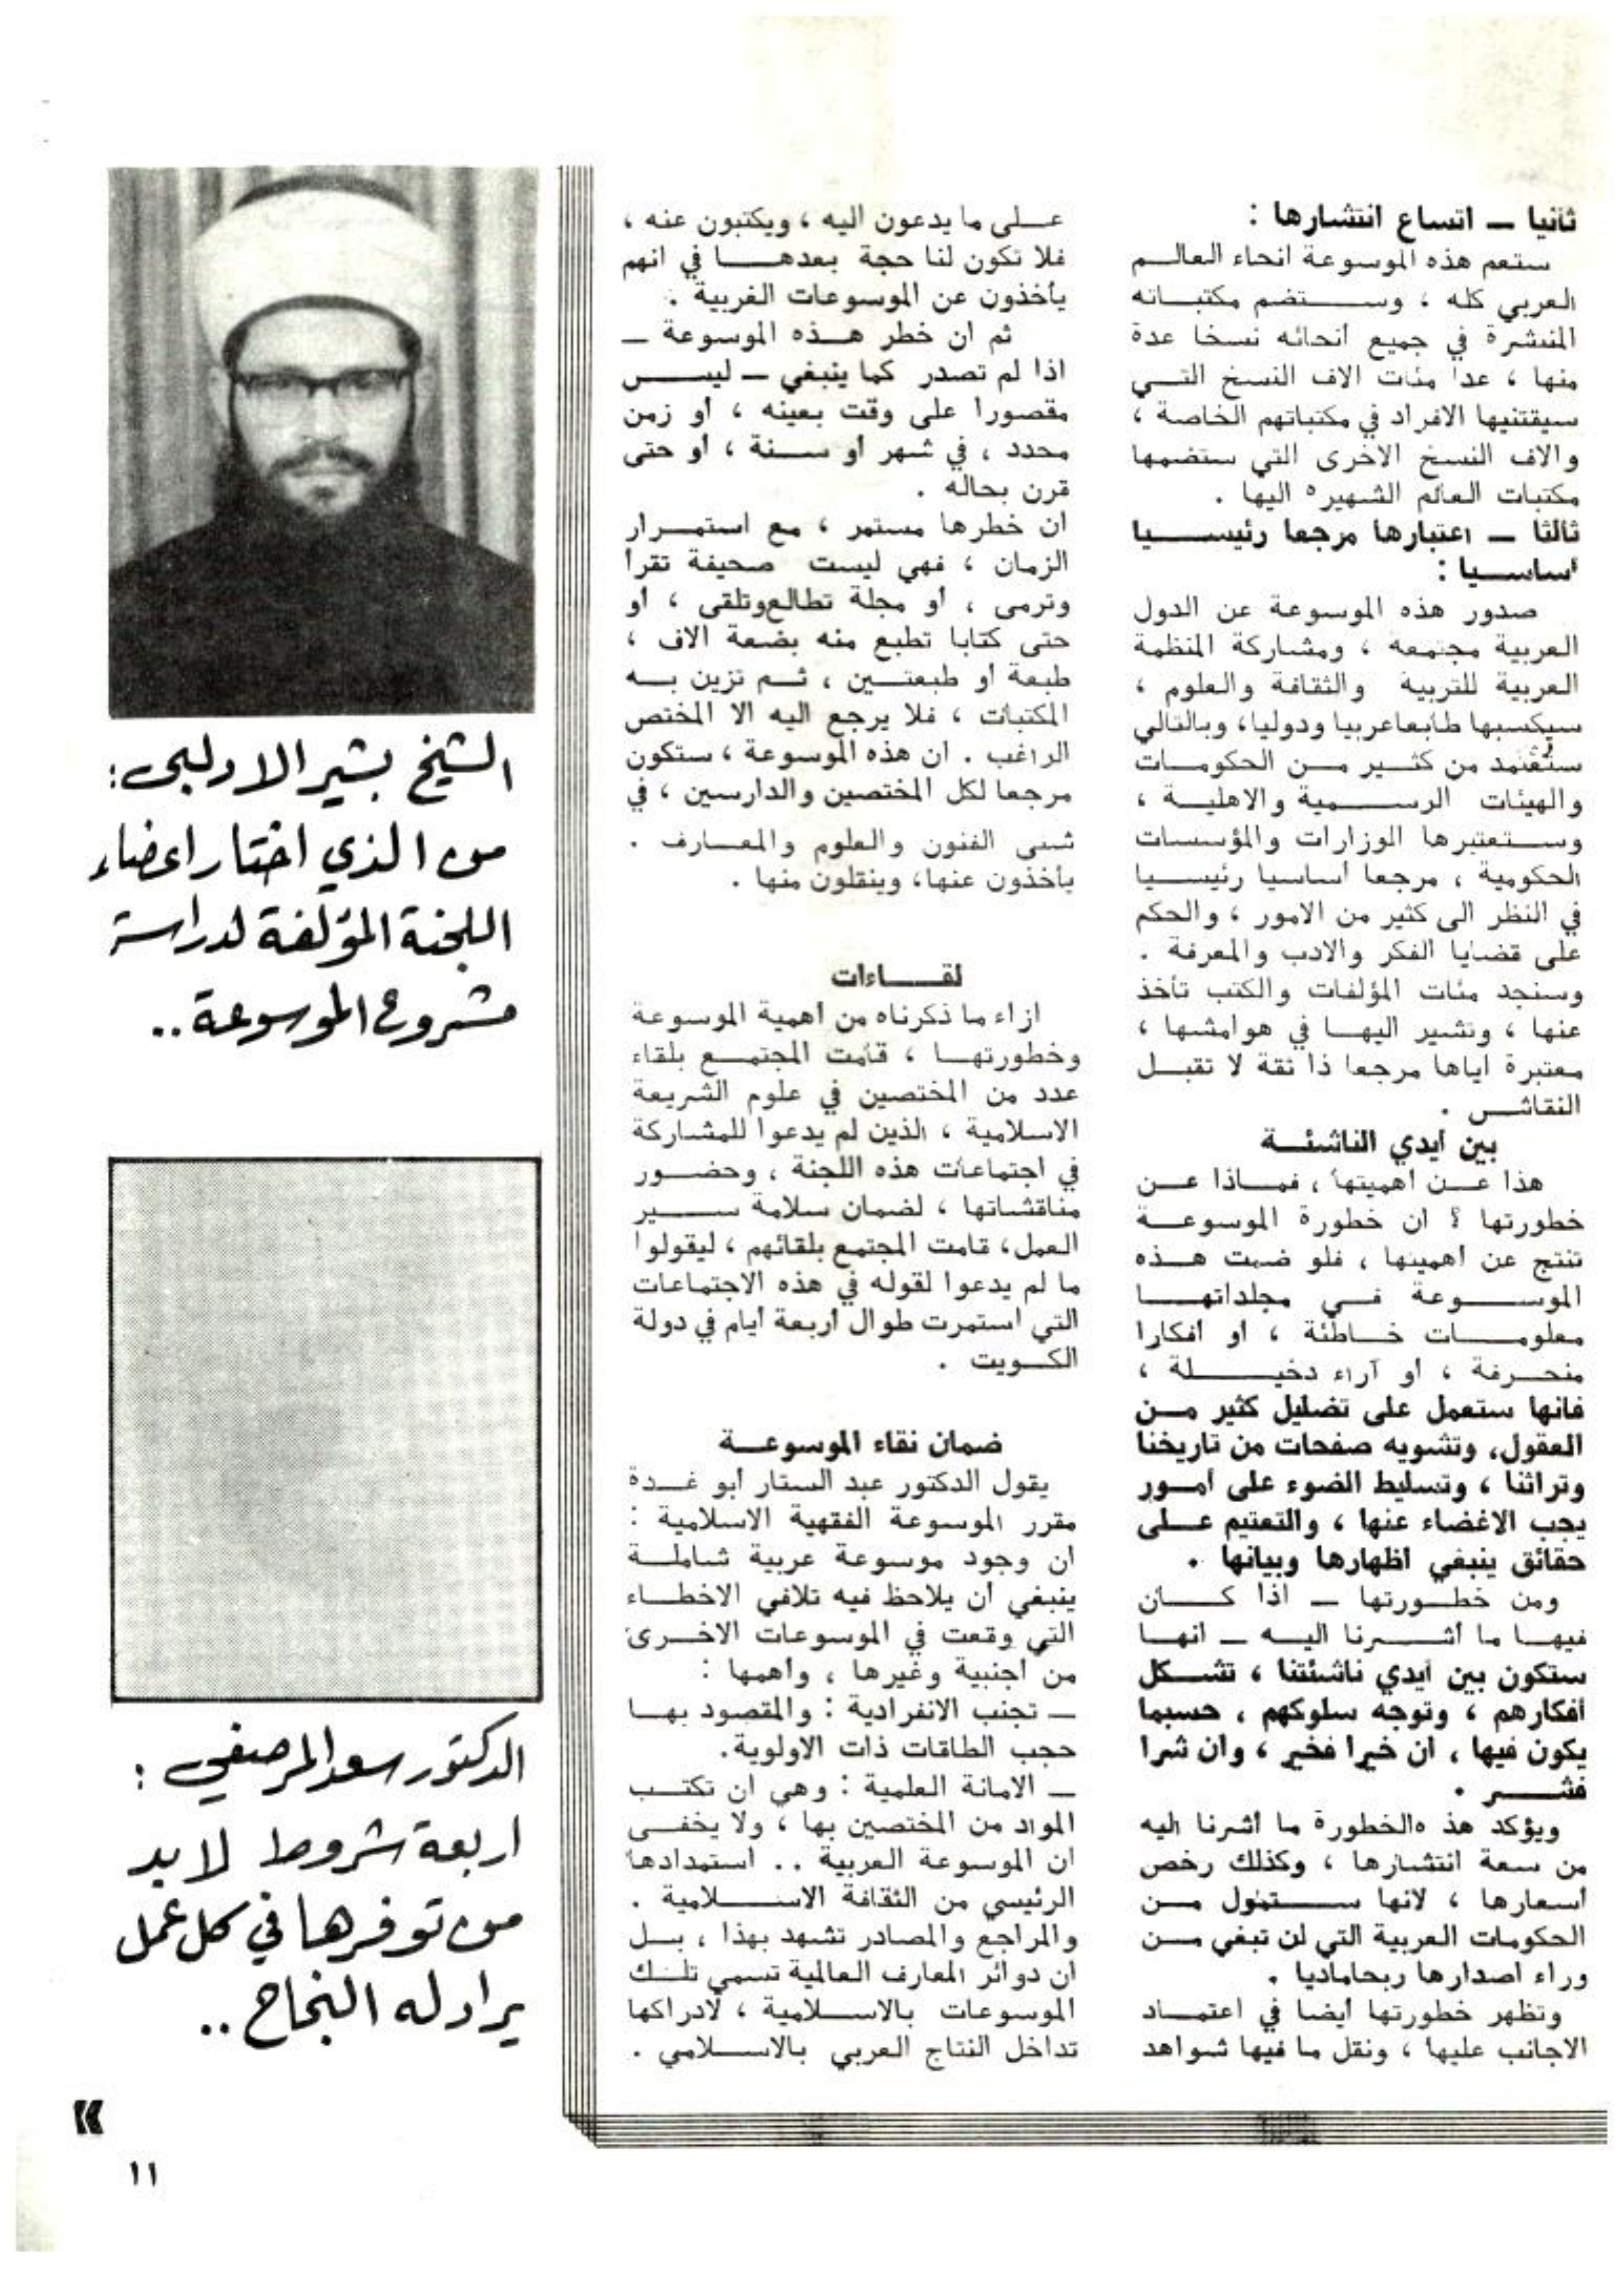 ثانيا ـ اتساع انتشارها :
ستعم هذه الموسوعة انحاء العالم
العربي كله ، وستضم مكتباته
المنتشرة في جميع انحائه نسخا عدة
منها ، عدا مئات الاف النسخ التي
سيقتنيها الافراد في مكتباتهم الخاصة ،
والاف النسخ الاخرى التي ستضمها
مكتبات العالم الشهيره اليها .
ثالثا ـ اعتبارها مرجعا رئيسيا
أساسيا :
صدور هذه الموسوعة عن الدول
العربية مجتمعه ، ومشاركة المنظمة
العربية للتربية والثقافة والعلوم ،
سيكسبها طابعاعربيا ودوليا، وبالتالي
ستُعتمد من كثير من الحكومات
والهيئات الرسمية والاهلية ،
وستعتبرها الوزارات والمؤسسات
الحكومية ، مرجعا أساسيا رئيسيا
في النظر الى كثير من الامور ، والحكم
على قضايا الفكر والادب والمعرفة .
وسنجد مئات المؤلفات والكتب تأخذ
عنها ، وتشير اليها في هوامشها ،
معتبرة اياها مرجعا ذا ثقة لا تقبل
النقاش .
بين أيدي الناشئة
هذا عن اهميتها ، فماذا عن
خطورتها ؟ ان خطورة الموسوعة
تنتج عن اهميتها ، فلو ضمت هذه
الموسوعة في مجلداتها
معلومات خاطئة ، أو أفكارا
منحرفة ، أو آراء دخيلة ،
فانها ستعمل على تضليل كثير من
العقول، وتشويه صفحات من تاريخنا
وتراثنا ، وتسليط الضوء على أمور
يجب الاغضاء عنها ، والتعتيم على
حقائق ينبغي اظهارها وبيانها .
ومن خطورتها ـ اذا كان
فيها ما أشرنا اليه ـ انها
ستكون بين أيدي ناشئتنا ، تشكل
أفكارهم ، وتوجه سلوكهم ، حسبما
يكون فيها ، ان خيرا فخير ، وان شرا
فشر .
ويؤكد هذ هالخطورة ما أشرنا اليه
من سعة انتشارها ، وكذلك رخص
أسعارها ، لانها ستمول من
الحكومات العربية التي لن تبغي من
وراء اصدارها ربحاماديا .
وتظهر خطورتها أيضا في اعتماد
الاجانب عليها ، ونقل ما فيها شواهد
على ما يدعون اليه ، ويكتبون عنه ،
فلا تكون لنا حجة بعدها في انهم
يأخذون عن الموسوعات الغربية .
ثم ان خطر هذه الموسوعة ـ
اذا لم تصدر كما ينبغي ـ ليس
مقصورا على وقت بعينه ، أو زمن
محدد ، في شهر أو سنة ، أو حتى
قرن بحاله .
ان خطرها مستمر ، مع استمرار
الزمان ، فهي ليست صحيفة تقرأ
وترمى ، أو مجلة تطالع وتلقى ، أو
حتى كتابا تطبع منه بضعة الاف ،
طبعة او طبعتين ، ثم تزين به
المكتبات ، فلا يرجع اليه الا المختص
الراغب . ان هذه الموسوعة ، ستكون
مرجعا لكل المختصين والدارسين ، في
شتى الفنون والعلوم والمعارف .
يأخذون عنها، وينقلون منها .
لقاءات
ازاء ما ذكرناه من أهمية الموسوعة
وخطورتها ، قامت المجتمع بلقاء
عدد من المختصين في علوم الشريعة
الاسلامية ، الذين لم يدعوا للمشاركة
في اجتماعات هذه اللجنة ، وحضور
مناقشاتها ، لضمان سلامة سير
العمل، قامت المجتمع بلقائهم ، ليقولوا
ما لم يدعوا لقوله في هذه الاجتماعات
التي استمرت طوال أربعة أيام في دولة
الكويت .
ضمان نقاء الموسوعة
يقول الدكتور عبد الستار أبو غدة
مقرر الموسوعة الفقهية الاسلامية :
ان وجود موسوعة عربية شاملة
ينبغي أن يلاحظ فيه تلافي الاخطاء
التي وقعت في الموسوعات الاخرى
من أجنبية وغيرها ، وأهمها :
ـ تجنب الانفرادية : والمقصود بها
حجب الطاقات ذات الاولوية.
ـ الامانة العلمية : وهي ان تكتب
المواد من المختصين بها ، ولا يخفى
ان الموسوعة العربية .. استمدادها
الرئيسي من الثقافة الاسلامية .
والمراجع والمصادر تشهد بهذا ، بل
ان دوائر المعارف العالمية تسمي تلك
الموسوعات بالاسلامية ، لادراكها
تداخل النتاج العربي بالاسلامي .
الشيخ بشير الادلبي:
من الذي اختار اعضاء
اللجنة المؤلفة لدراسة
مشروع الموسوعة ..
الدكتور سعد المرصفي :
اربعة شروط لا بد
من توفرها في كل عمل
يراد له النجاح ..
»
١١